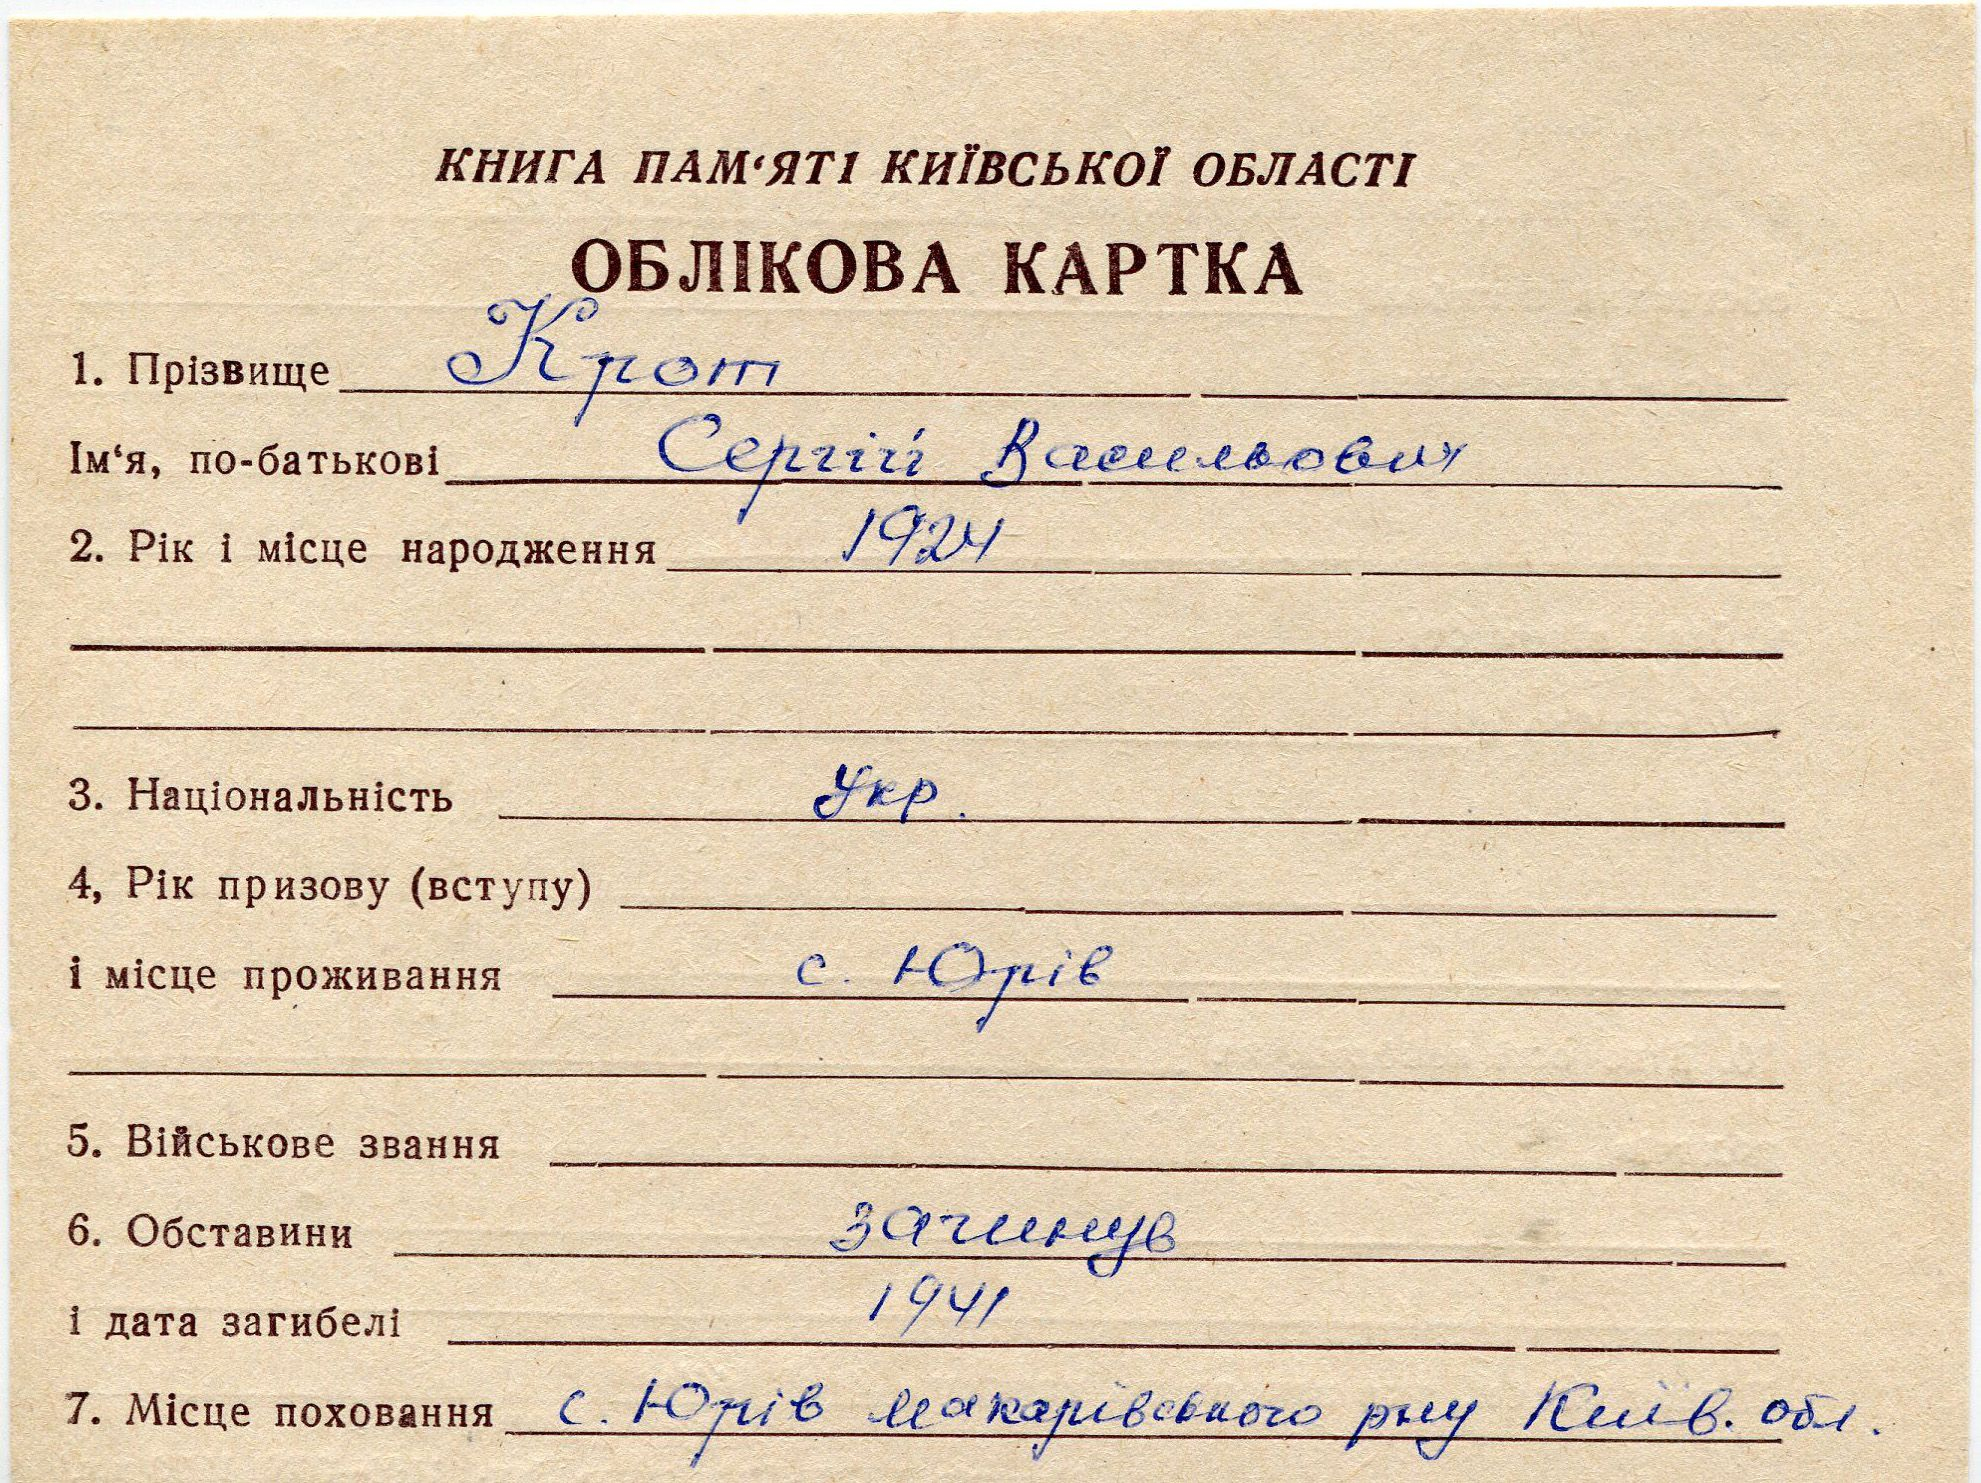 КНИГА ПАМ‘ЯТІ КИЇВСЬКОЇ ОБЛАСТІ
ОБЛІКОВА КАРТКА
1. Прізвище Крот
Ім‘я, по-батькові Сергій Васильович
2. Рік і місце народження 1924
3. Національність Укр.
4, Рік призову (вступу)
і місце проживання с. Юрів
5. Військове звання
6. Обставини загинув
і дата загибелі 1941
7. Місце поховання с. Юрів Макарівського рну Київ. обл.